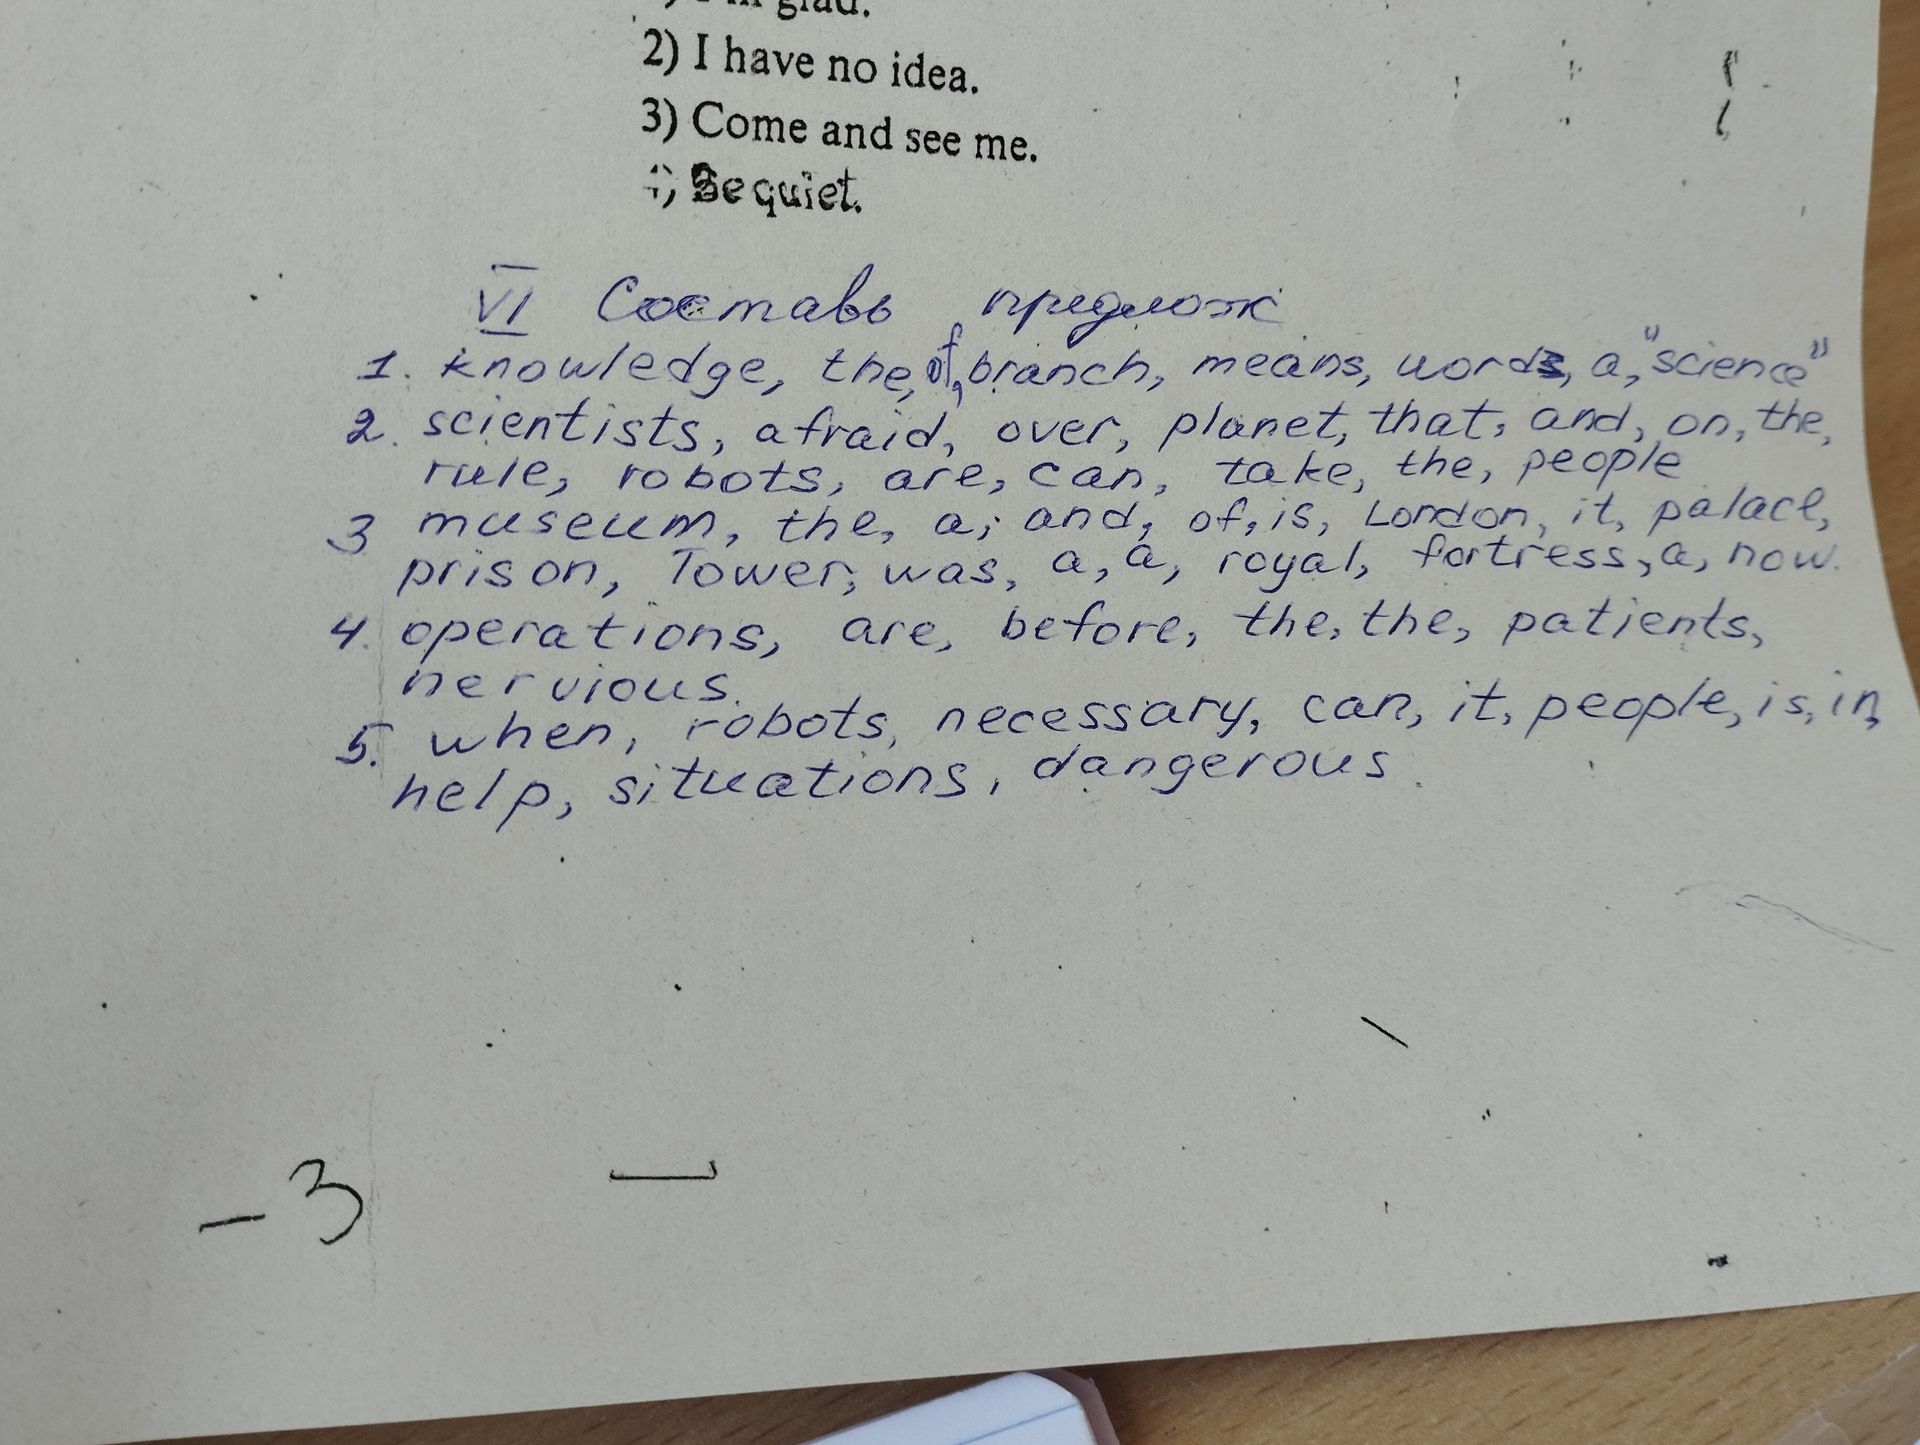 I'm glad.
2) I have no idea.
3) Come and see me.
4) Be quiet.
VI Составь предлож
1. knowledge, the, of, branch, means, words, a, "science"
2. scientists, afraid, over, planet, that, and, on, the,
rule, robots, are, can, take, the, people
3 museum, the, a, and, of, is, London, it, palace,
prison, Tower, was, a, a, royal, fortress, a, now.
4. operations, are, before, the, the, patients,
nervious.
5. when, robots, necessary, can, it, people, is, in,
help, situations, dangerous.
- 3